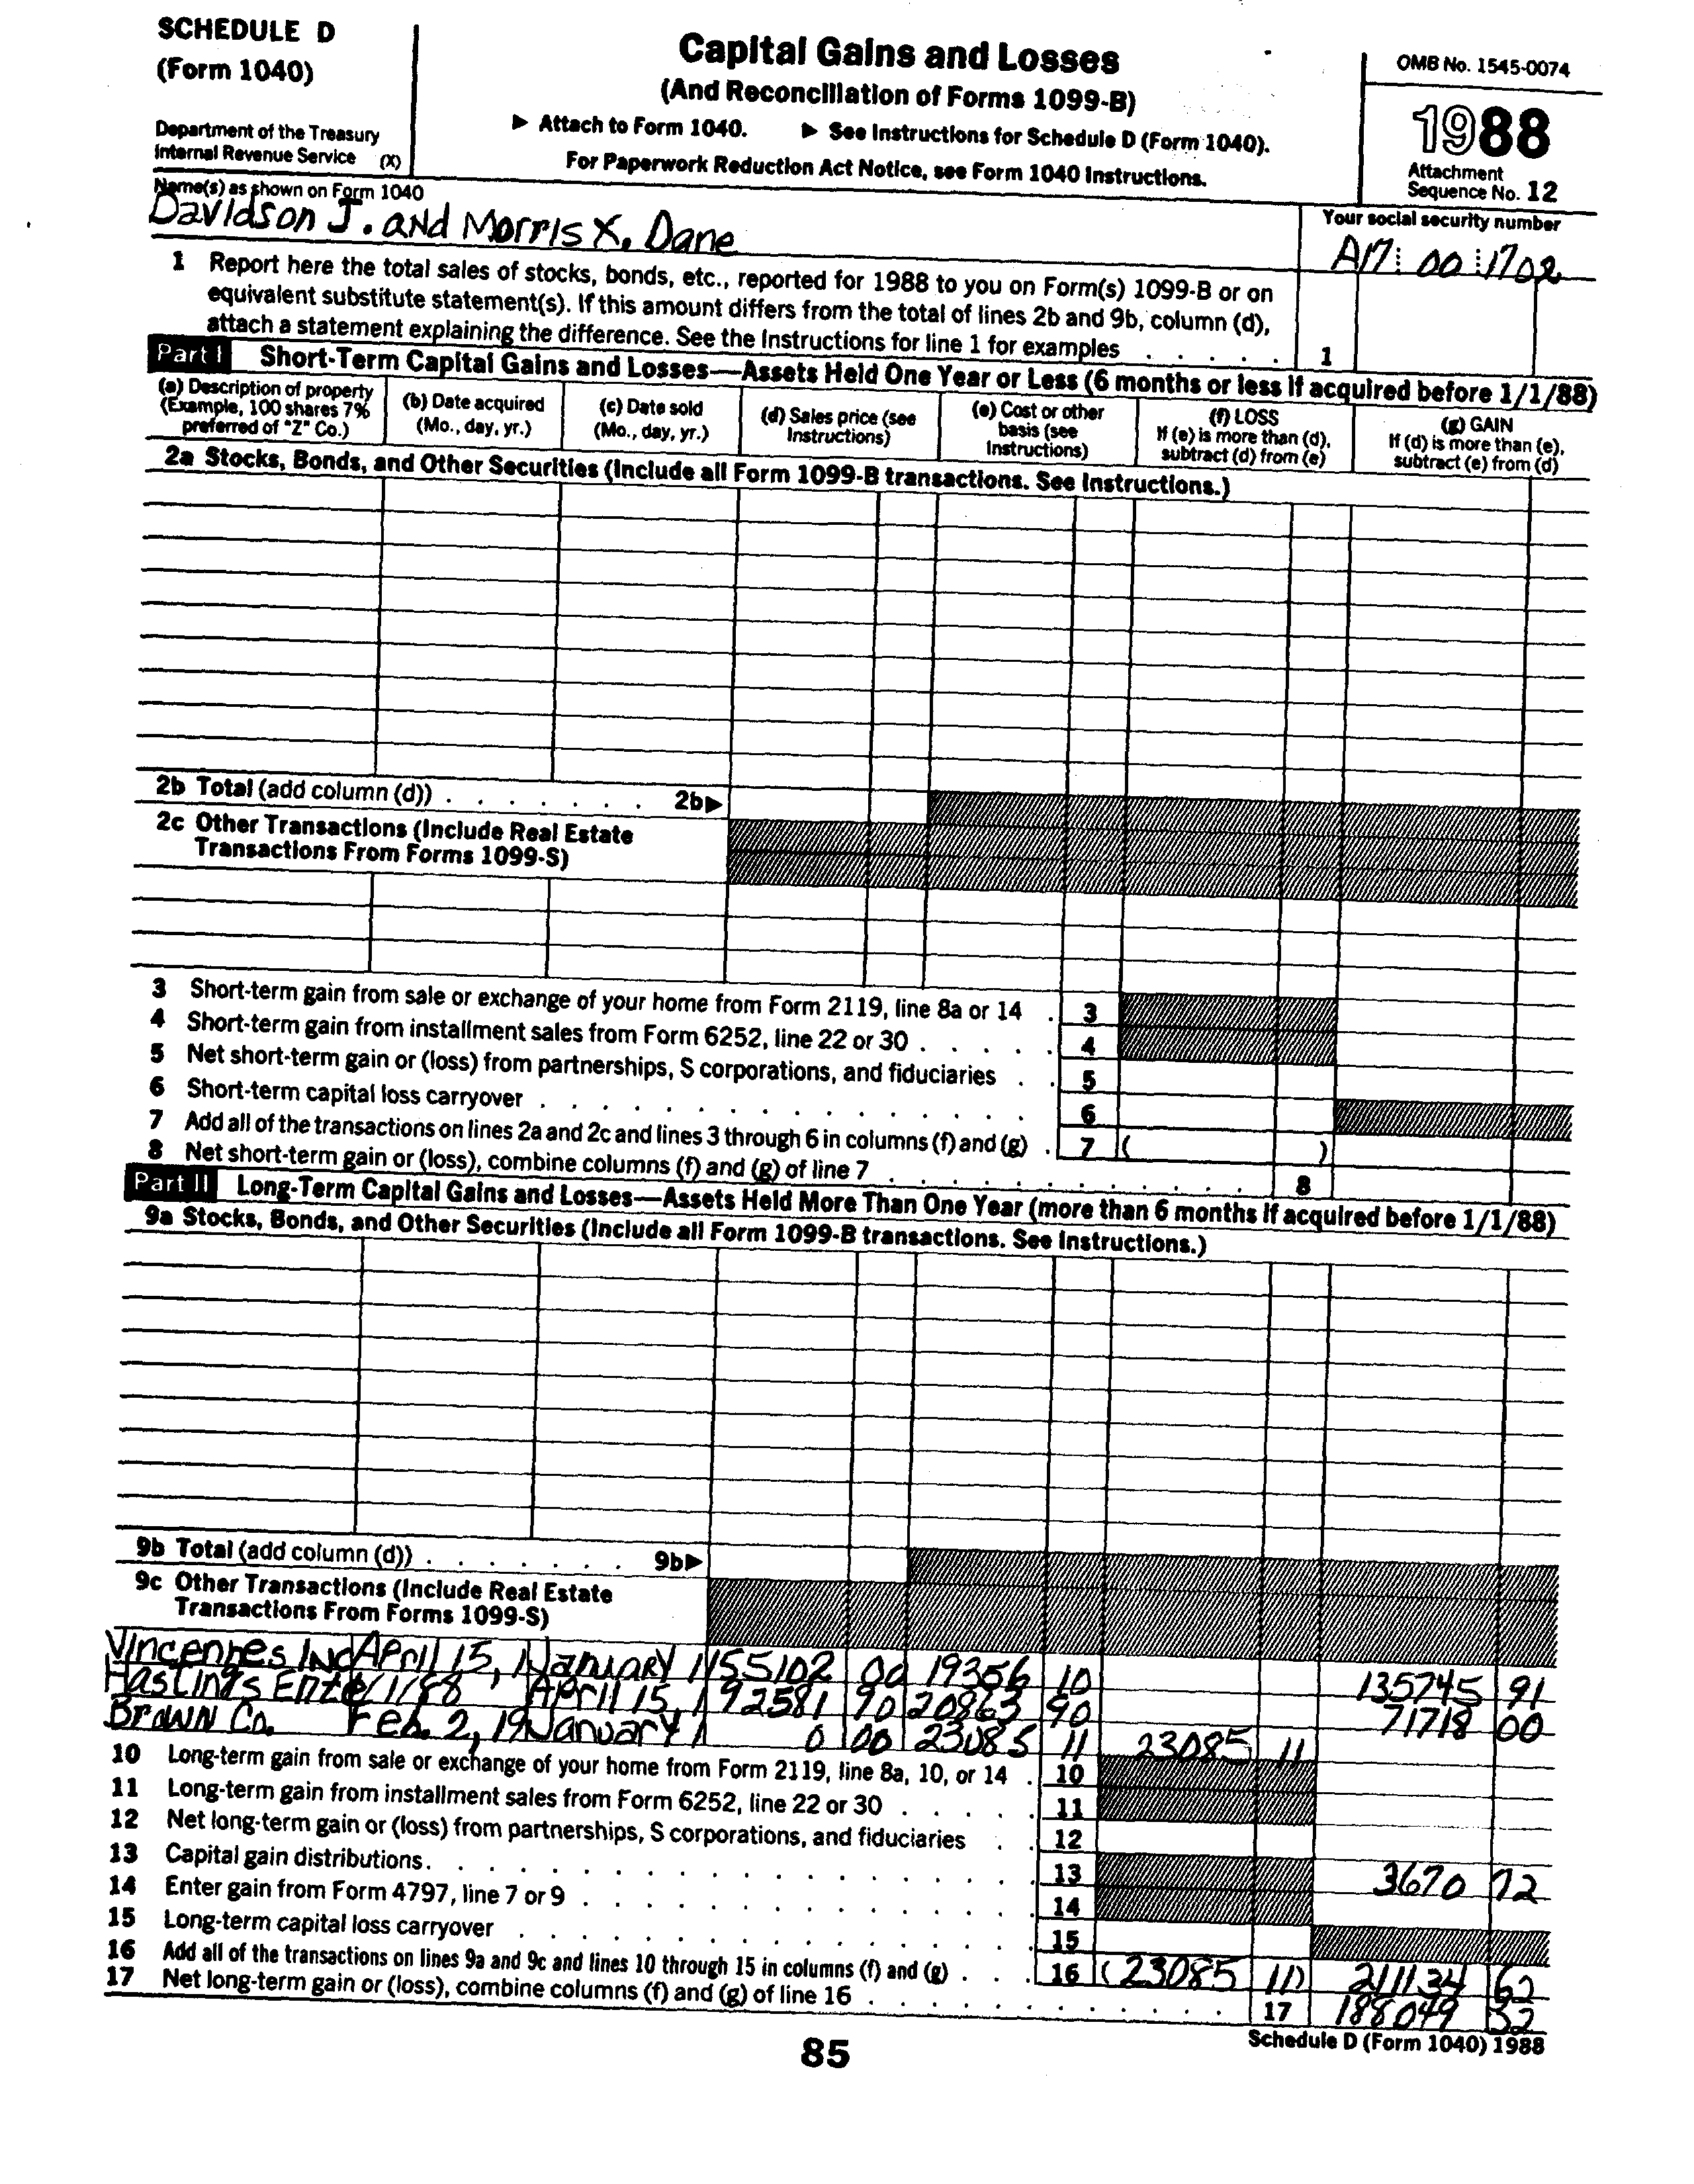 SCHEDULE D
(Form 1040)
Department of the Treasury
Internal Revenue Service (X)
Capital Gains and Losses
(And Reconciliation of Forms 1099-B)
▶ Attach to Form 1040. ▶ See Instructions for Schedule D (Form 1040).
For Paperwork Reduction Act Notice, see Form 1040 Instructions.
OMB No. 1545-0074
1988
Attachment
Sequence No. 12
Name(s) as shown on Form 1040
Davidson J. and Morris X. Dane
Your social security number
A17 00 1702
1 Report here the total sales of stocks, bonds, etc., reported for 1988 to you on Form(s) 1099-B or on
equivalent substitute statement(s). If this amount differs from the total of lines 2b and 9b, column (d),
attach a statement explaining the difference. See the Instructions for line 1 for examples . . . . . 1
Part I Short-Term Capital Gains and Losses—Assets Held One Year or Less (6 months or less if acquired before 1/1/88)
(a) Description of property
(Example, 100 shares 7%
preferred of "Z" Co.)
(b) Date acquired
(Mo., day, yr.)
(c) Date sold
(Mo., day, yr.)
(d) Sales price (see
Instructions)
(e) Cost or other
basis (see
Instructions)
(f) LOSS
If (e) is more than (d),
subtract (d) from (e)
(g) GAIN
If (d) is more than (e),
subtract (e) from (d)
2a Stocks, Bonds, and Other Securities (Include all Form 1099-B transactions. See Instructions.)
2b Total (add column (d)) . . . . . . . 2b▶
2c Other Transactions (Include Real Estate
Transactions From Forms 1099-S)
3 Short-term gain from sale or exchange of your home from Form 2119, line 8a or 14 . 3
4 Short-term gain from installment sales from Form 6252, line 22 or 30 . . . . . 4
5 Net short-term gain or (loss) from partnerships, S corporations, and fiduciaries . . 5
6 Short-term capital loss carryover . . . . . . . . . . . . . . . . 6
7 Add all of the transactions on lines 2a and 2c and lines 3 through 6 in columns (f) and (g) . 7 ( )
8 Net short-term gain or (loss), combine columns (f) and (g) of line 7 . . . . . . . . . . . . 8
Part II Long-Term Capital Gains and Losses—Assets Held More Than One Year (more than 6 months if acquired before 1/1/88)
9a Stocks, Bonds, and Other Securities (Include all Form 1099-B transactions. See Instructions.)
9b Total (add column (d)) . . . . . . . 9b▶
9c Other Transactions (Include Real Estate
Transactions From Forms 1099-S)
Vincennes Inc April 15, 1 January 1 155102 00 19356 10 135745 91
Hastings Ente 1/1/88 April 15, 1 92581 90 20863 90 71718 00
Brown Co. Feb. 2, 19 January 1 0 00 23085 11 23085 11
10 Long-term gain from sale or exchange of your home from Form 2119, line 8a, 10, or 14 . 10
11 Long-term gain from installment sales from Form 6252, line 22 or 30 . . . . . 11
12 Net long-term gain or (loss) from partnerships, S corporations, and fiduciaries . . 12
13 Capital gain distributions. . . . . . . . . . . . . . . . . . 13 3670 72
14 Enter gain from Form 4797, line 7 or 9 . . . . . . . . . . . . . 14
15 Long-term capital loss carryover . . . . . . . . . . . . . . . 15
16 Add all of the transactions on lines 9a and 9c and lines 10 through 15 in columns (f) and (g) . . . 16 (23085 11) 211134 62
17 Net long-term gain or (loss), combine columns (f) and (g) of line 16 . . . . . . . . . . . . 17 188049 52
85
Schedule D (Form 1040) 1988